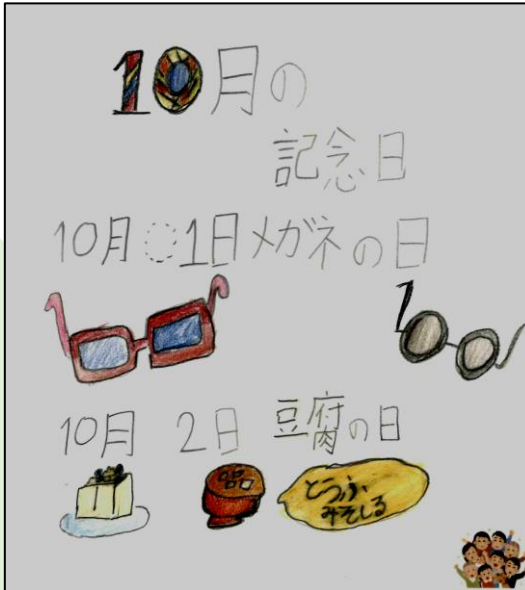 10月の
記念日
10月1日メガネの日
10月 2日 豆腐の日
とうふ
みそしる